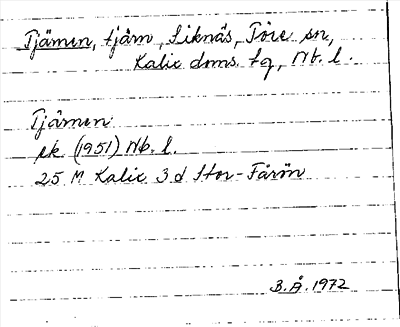 Tjämen, tjärn, Siknäs, Töre sn,
Kalix doms. tg, Nb. l.
Tjämen
ek (1951) Nb. l.
25 M Kalix 3 d Stor-Fårön
B.Å. 1972